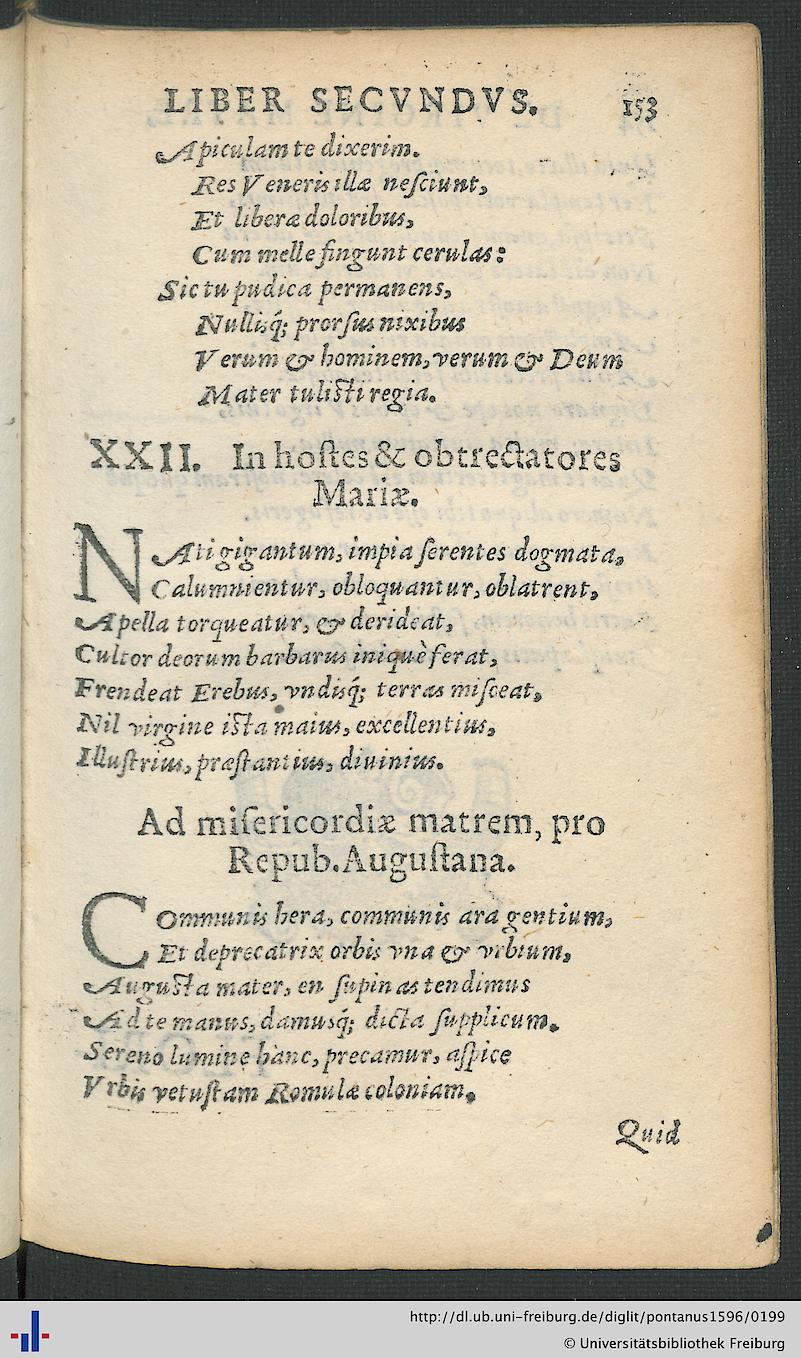 LIBER SECVNDVS. 153
Apiculam te dixerim.
Res Veneris illæ neſciunt,
Et liberæ doloribus,
Cum melle fingunt cerulas:
Sic tu pudica permanens,
Nullisq́; prorſus nixibus
Verum & hominem, verum & Deum
Mater tuliſti regia.
XXII. In hoſtes & obtrectatores
Mariæ.
NAti gigantum, impia ſerentes dogmata,
Calumnientur, obloquantur, oblatrent,
Apella torqueatur, & derideat,
Cultor deorum barbarus iniquè ferat,
Frendeat Erebus, vndisq́; terras miſceat,
Nil virgine iſta maius, excellentius,
Illuſtrius, præſtantius, diuinius.
Ad miſericordiæ matrem, pro
Repub. Auguſtana.
COmmunis hera, communis ara gentium,
Et deprecatrix orbis vna & vrbium,
Auguſta mater, en ſupinas tendimus
Ad te manus, damusq́; dicta ſupplicum.
Sereno lumine hanc, precamur, aſpice
Vrbis vetuſtam Romulæ coloniam.
Quid
http://dl.ub.uni-freiburg.de/diglit/pontanus1596/0199
© Universitätsbibliothek Freiburg